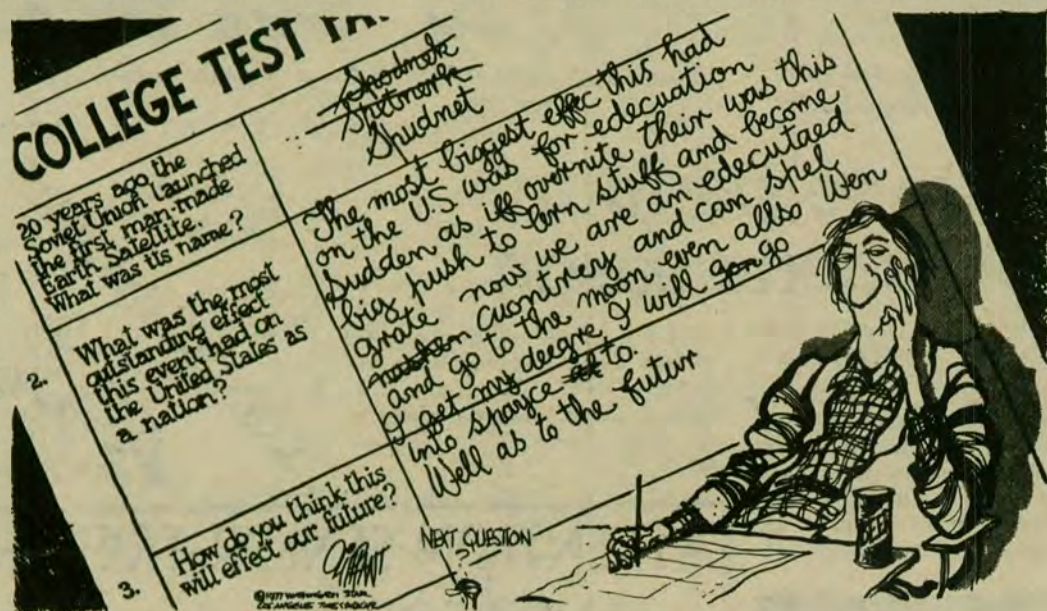 COLLEGE TEST
20 years ago the
Soviet Union launched
the first man-made
Earth Satellite.
What was tis name?
Spudnet
2.
What was the most
outstanding effect
this event had on
the United States as
a nation?
The most biggest effec this had
on the U.S. was for edecuation
Sudden as iff overnite their was this
big push to lern stuff and become
grate now we are an edecutaed
cuontrery and can spel
and go to the moon even allso Wen
I get my deegre I will gon go
into spayce to.
Well as to the futur
3.
How do you think this
will effect our future?
OLIPHANT
©1977 WASHINGTON STAR
LOS ANGELES TIMES
NEXT QUESTION
BEER